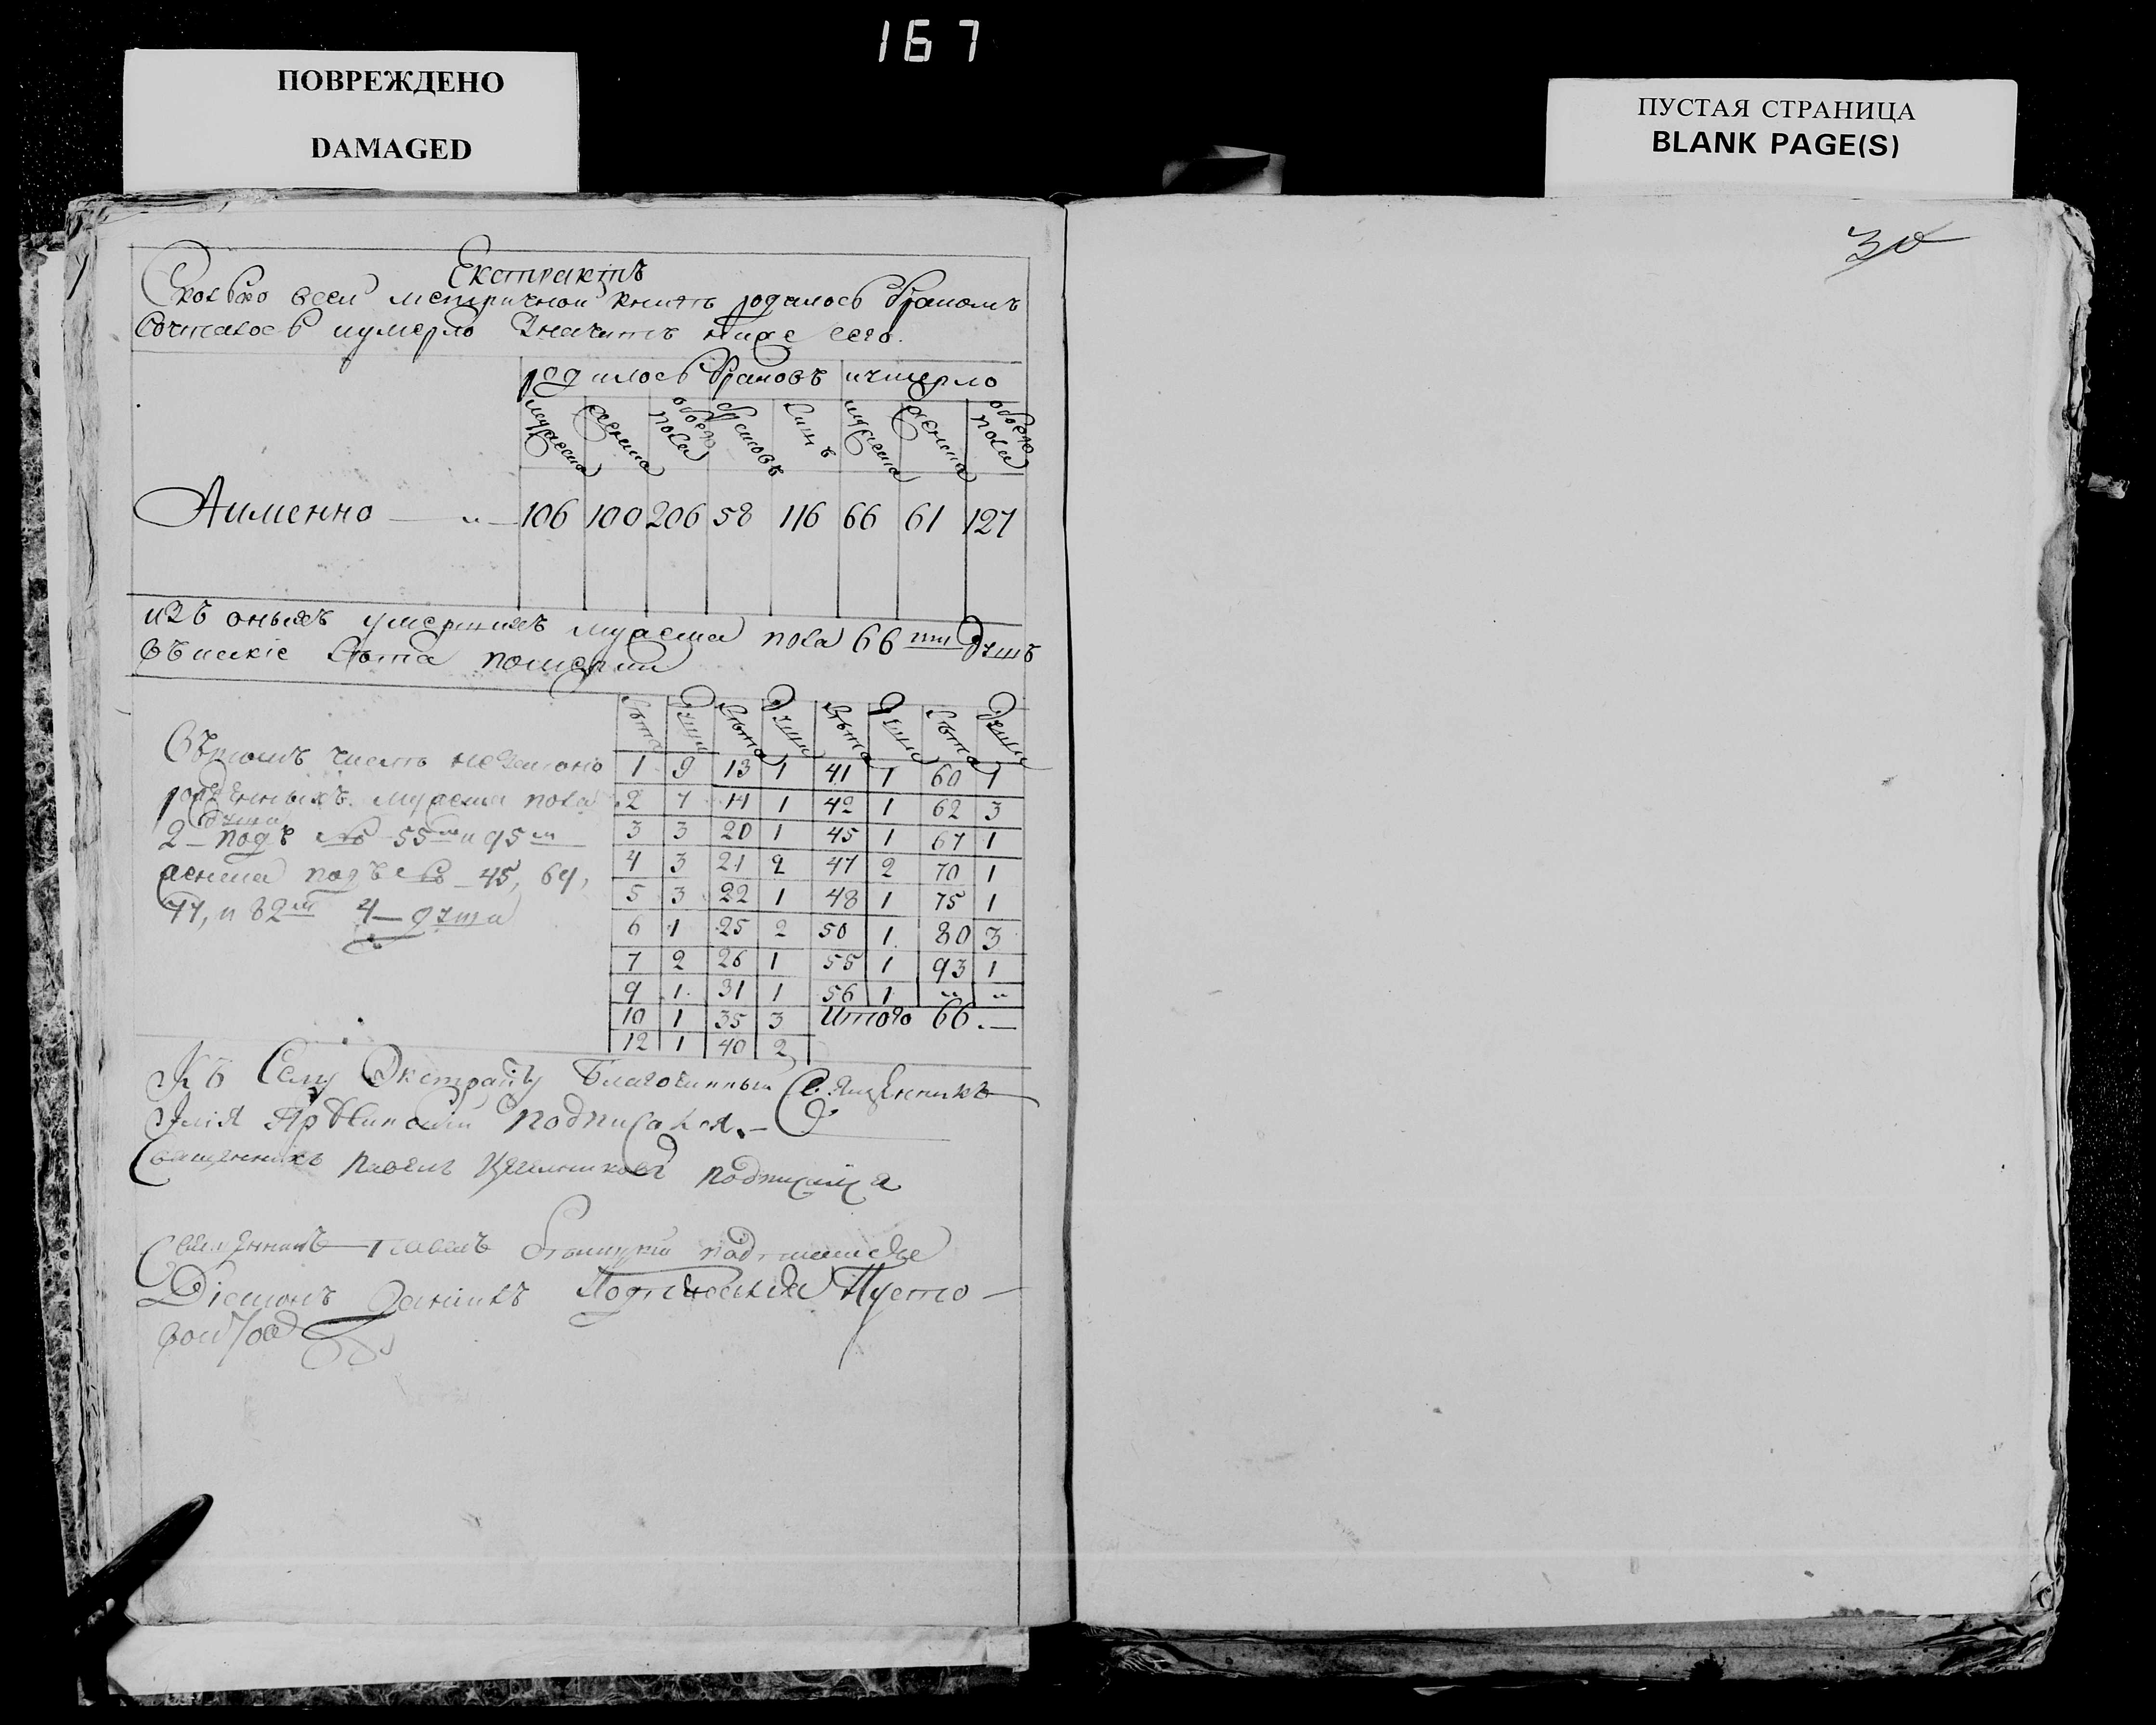 167
ПОВРЕЖДЕНО
DAMAGED
ПУСТАЯ СТРАНИЦА
BLANK PAGE(S)
30
Екстрактъ
Сколько всей метричной книгѣ родилось бракомъ
сочталось иумерло значитъ ниже сего.
родилось браковъ иумерло
мужеска женска обоего пола браковъ лицъ мужеска женска обоего пола
Аименно 106 100 206 58 116 66 61 127
изъ оныхъ умершихъ мужеска пола 66 ти душъ
въ какіе лѣта померли
лѣта души лѣта души лѣта души лѣта души
1 9 13 1 41 1 60 1
2 7 14 1 42 1 62 3
3 3 20 1 45 1 67 1
4 3 21 2 47 2 70 1
5 3 22 1 48 1 75 1
6 1 25 2 50 1 80 3
7 2 26 1 55 1 93 1
9 1 31 1 56 1 „ „
10 1 35 3 Итого 66.—
12 1 40 2
Вътомъ числѣ незаконо
рожденныхъ мужеска пола
души
2 — подъ № 55 и 95
женска подъ № 45, 64,
77, и 82 4 — душа
Къ Сему Экстракту Благочинный Священникъ
Илія подписался.—
Священникъ Павелъ подписался
Священникъ Павелъ
Діаконъ